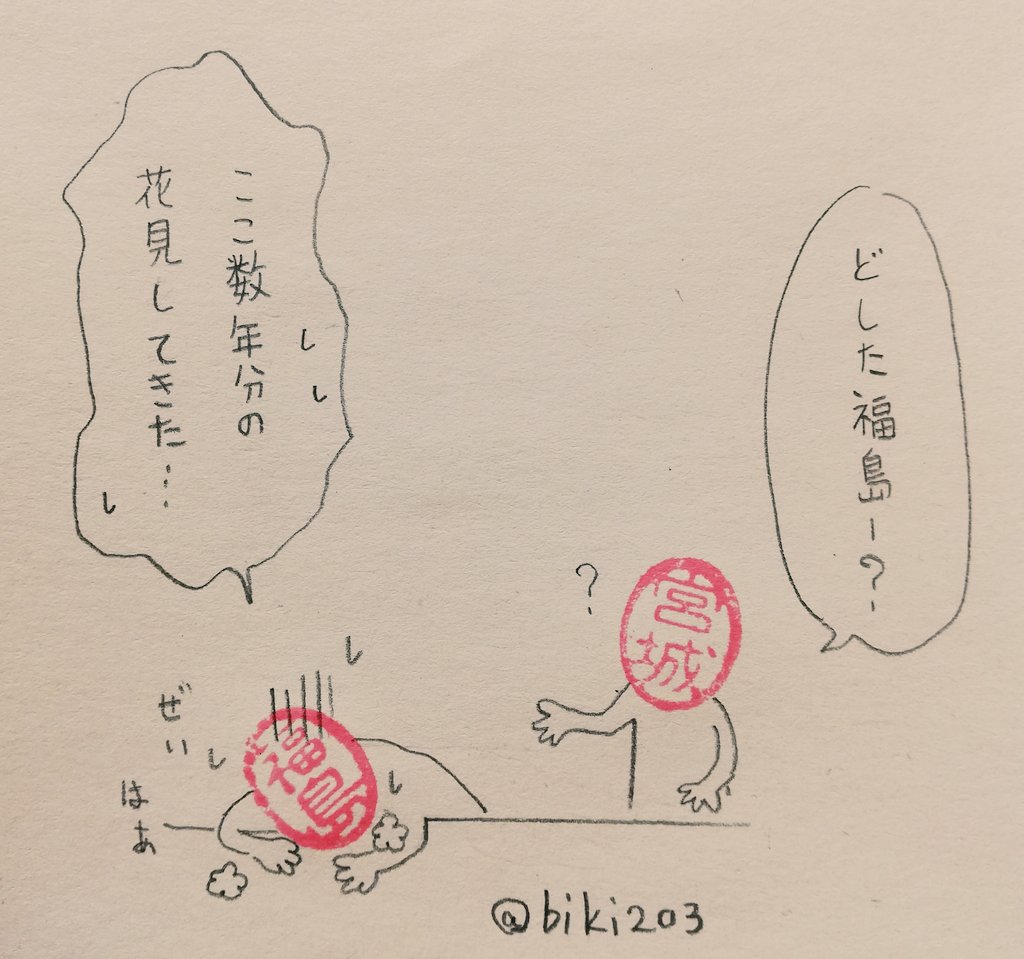 どした福島ー？
ここ数年分の
花見してきた…
？
宮城
福島
ぜぃ
はぁ
@biki203